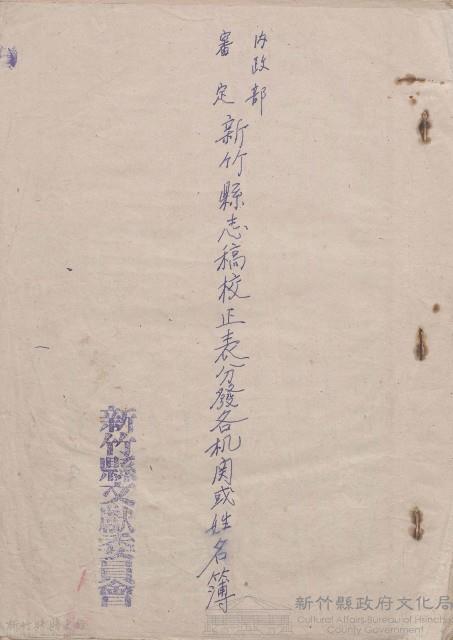 內政部
審定新竹縣志稿校正表分發各机関或姓名簿
新竹縣文獻委員會
新竹縣政府文化局
Cultural Affairs Bureau of Hsinchu
County Government